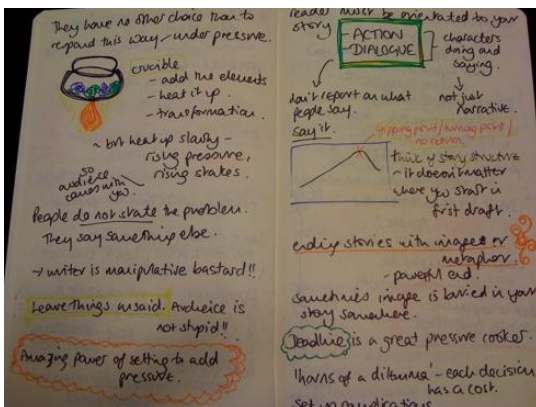 They have no other choice than to
respond this way – under pressure.
crucible
- add the elements
- heat it up
- transformation.
~ but heat up slowly –
rising pressure,
rising stakes.
so
audience
comes with
you.
People do not state the problem.
They say something else.
→ writer is manipulative bastard!!
Leave things unsaid. Audience is
not stupid!!
Amazing power of setting to add
pressure.
reader must be orientated to your
story
- ACTION
- DIALOGUE
characters
doing and
saying.
don't report on what
people say.
say it.
not just
narrative.
tipping point/turning point/
no return
think of story structure
- it doesn't matter
where you start in
first draft.
ending stories with images or
metaphor.
- powerful end.
sometimes image is buried in your
story somewhere.
Deadline is a great pressure cooker.
'horns of a dilemma' – each decision
has a cost.
set up